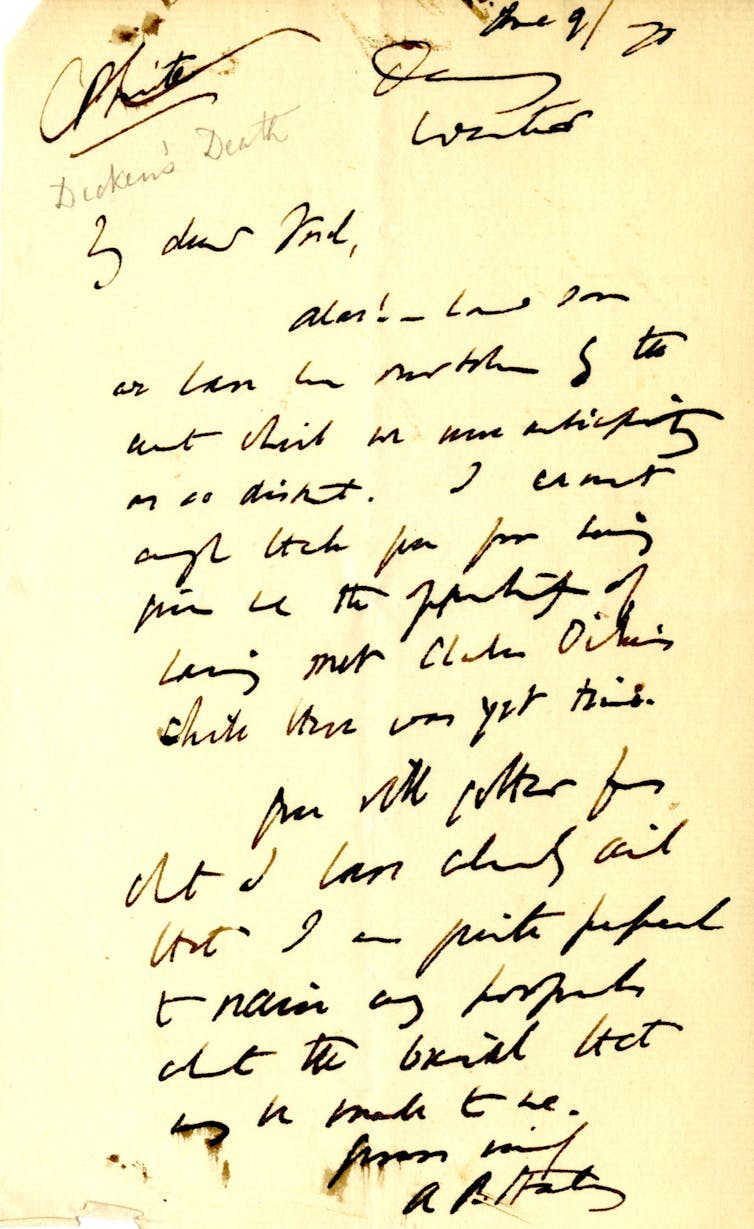 June 9/70
Private
Deanery
Westminster
Dickens' Death
My dear Lord,
Alas! – how soon
we have been overtaken by the
event which we were anticipating
as so distant. I cannot
enough thank you for having
given me the opportunity of
having met Charles Dickens
while there was yet time.
You will gather from
what I have already said
that I am quite prepared
to receive any proposals
about the burial that
may be made to me.
yours sincerely
A P Stanley